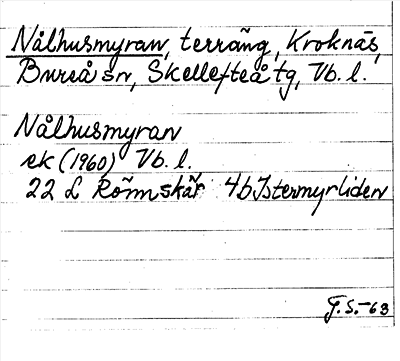 Nålhusmyran, terräng, Kroknäs,
Bureå sn, Skellefteå tg, Vb. l.
Nålhusmyran
ek (1960) Vb. l.
22 L Rönnskär 4b Istermyrliden
F.S.-63